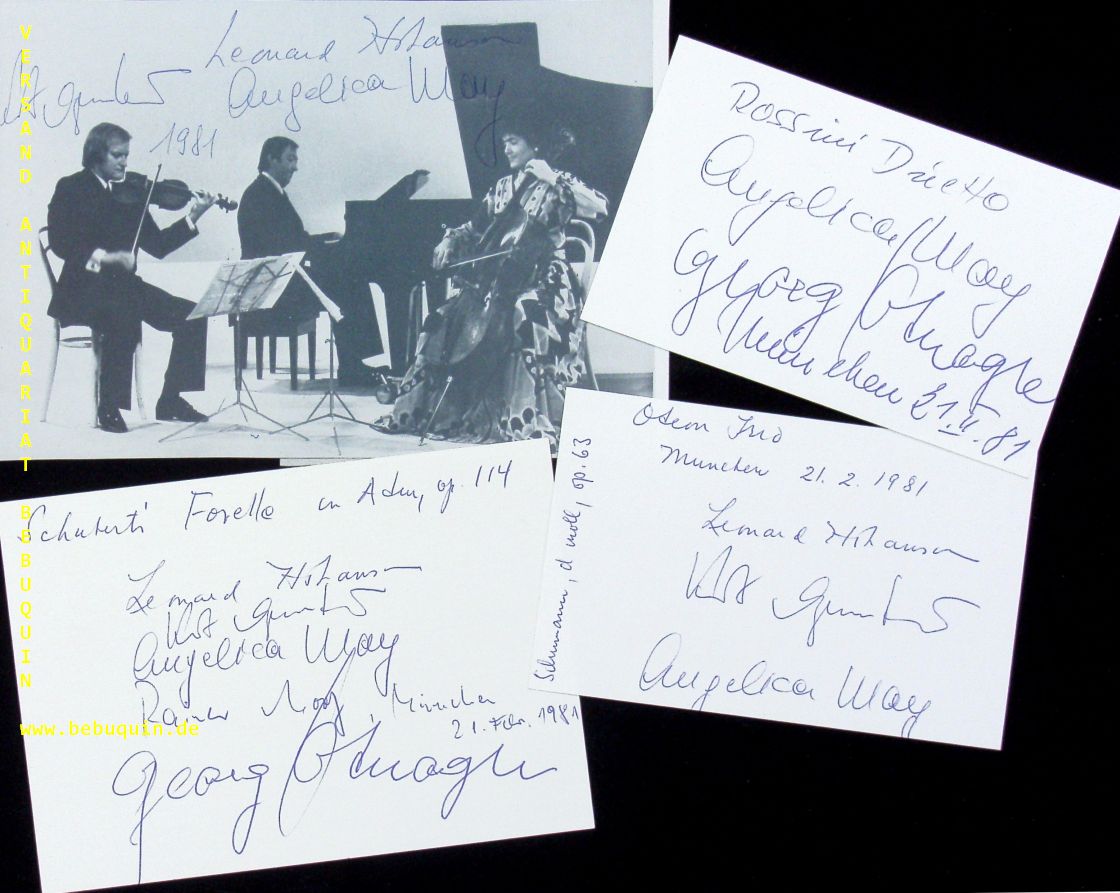 VERSAND ANTIQUARIAT BEBUQUIN
www.bebuquin.de
Leonard Hokanson
Angelica May
1981
Rossini Duetto
Angelica May
Georg
München 21.II.81
Odeon Trio
München 21.2.1981
Leonard Hokanson
Angelica May
Schumann, d moll, op. 63
Schubert Forelle in A dur, op. 114
Leonard Hokanson
Angelica May
Rainer Moog, München
21. Febr. 1981
Georg